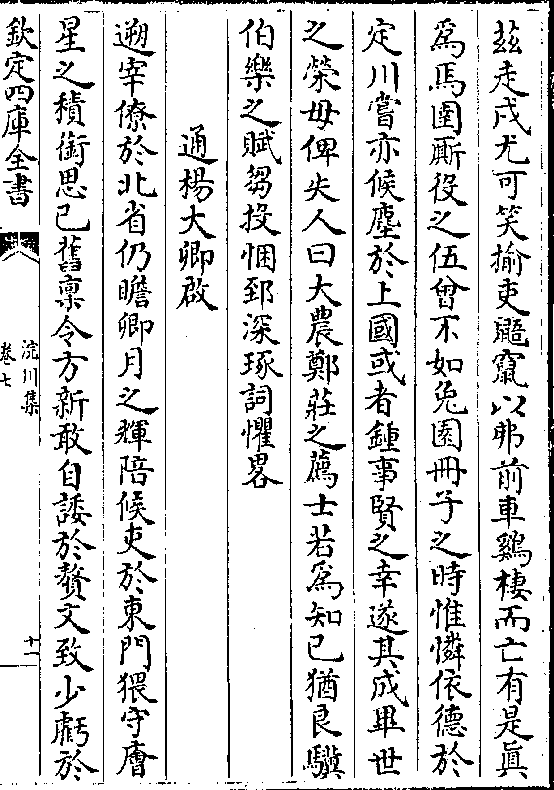 茲走戍尤可笑揄吏颺竄以弗前車鷄棲而亡有是眞
爲馬圉厮役之伍曾不如兔園冊子之時惟憐依德於
定川嘗亦候塵於上國或者鍾事賢之幸遂其成畢世
之榮毋俾失人曰大農鄭莊之薦士若爲知已猶良驥
伯樂之賦芻投悃郅深琢詞懼畧
通楊大卿啟
遡宰僚於北省仍瞻卿月之輝陪候吏於東門猥守廥
星之積銜思已舊稟令方新敢自諉於贅文致少虧於
欽定四庫全書
浣川集
卷七
十一